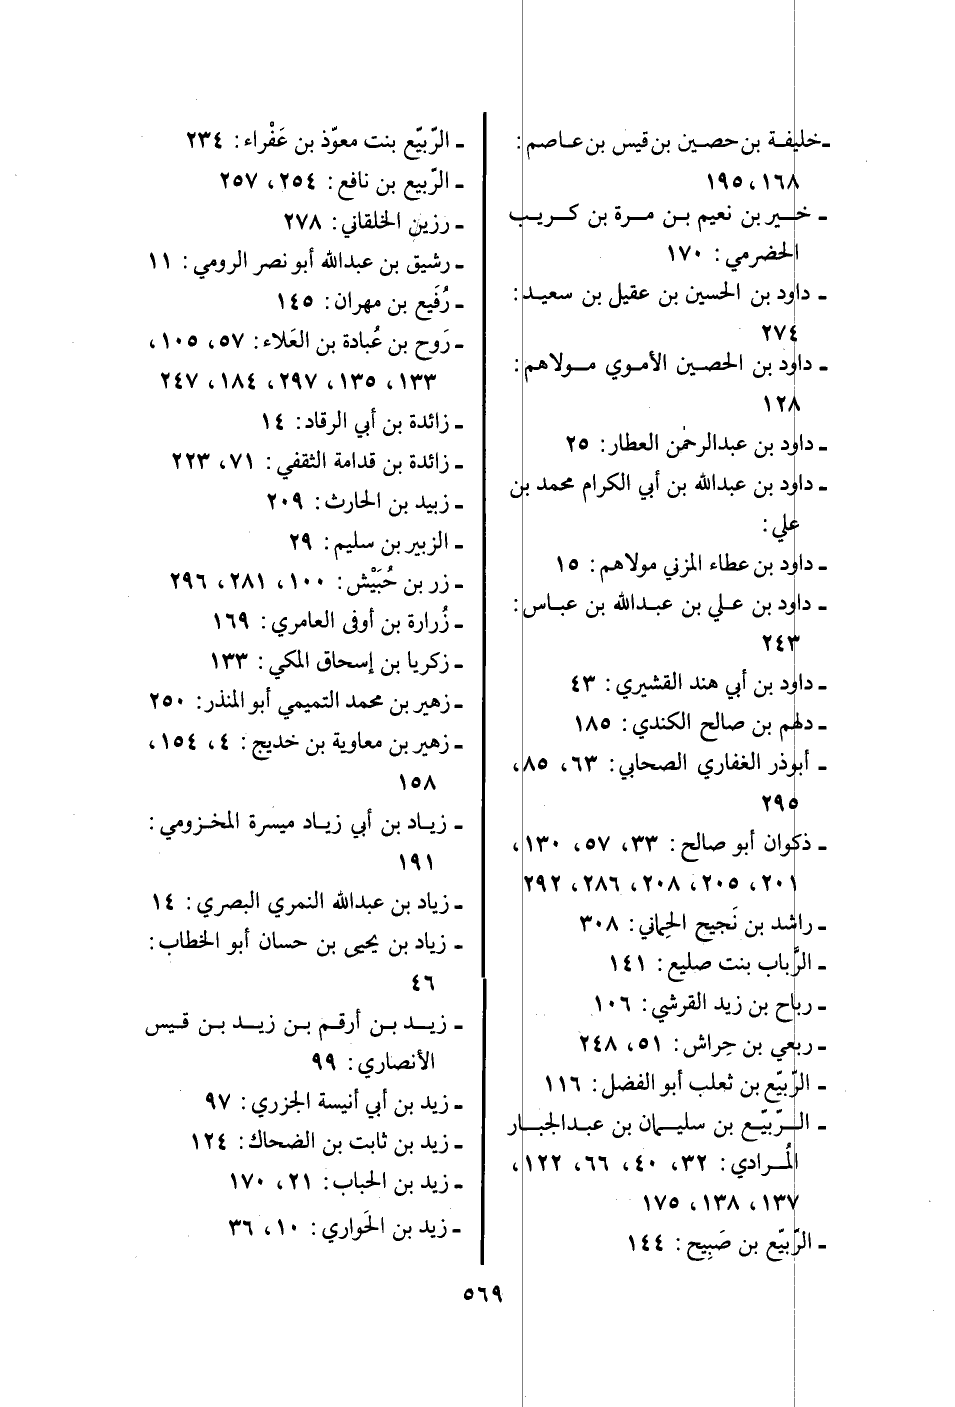 ـ خليفة بن حصين بن قيس بن عاصم:
١٦٨، ١٩٥
ـ خير بن نعيم بن مرة بن كريب
الحضرمي: ١٧٠
ـ داود بن الحسين بن عقيل بن سعيد:
٢٧٤
ـ داود بن الحصين الأموي مولاهم:
١٢٨
ـ داود بن عبدالرحمٰن العطار: ٢٥
ـ داود بن عبدالله بن أبي الكرام محمد بن
علي:
ـ داود بن عطاء المزني مولاهم: ١٥
ـ داود بن علي بن عبدالله بن عباس:
٢٤٣
ـ داود بن أبي هند القشيري: ٤٣
ـ دلهم بن صالح الكندي: ١٨٥
ـ أبوذر الغفاري الصحابي: ٦٣، ٨٥،
٢٩٥
ـ ذكوان أبو صالح: ٣٣، ٥٧، ١٣٠،
٢٠١، ٢٠٥، ٢٠٨، ٢٨٦، ٢٩٢
ـ راشد بن نَجيح الحِماني: ٣٠٨
ـ الرَّباب بنت صليع: ١٤١
ـ رباح بن زيد القرشي: ١٠٦
ـ ربعي بن حِراش: ٥١، ٢٤٨
ـ الرّبيّع بن ثعلب أبو الفضل: ١١٦
ـ الرّبيّع بن سليمان بن عبدالجبار
المُرادي: ٣٢، ٤٠، ٦٦، ١٢٢،
١٣٧، ١٣٨، ١٧٥
ـ الرّبيّع بن صَبِيح: ١٤٤
ـ الرّبيّع بنت معوّذ بن عَفْراء: ٢٣٤
ـ الرّبيع بن نافع: ٢٥٤، ٢٥٧
ـ رزين الخلقاني: ٢٧٨
ـ رشيق بن عبدالله أبو نصر الرومي: ١١
ـ رُفَيع بن مهران: ١٤٥
ـ رَوح بن عُبادة بن العَلاء: ٥٧، ١٠٥،
١٣٣، ١٣٥، ٢٩٧، ١٨٤، ٢٤٧
ـ زائدة بن أبي الرقاد: ١٤
ـ زائدة بن قدامة الثقفي: ٧١، ٢٢٣
ـ زبيد بن الحارث: ٢٠٩
ـ الزبير بن سليم: ٢٩
ـ زر بن حُبَيْش: ١٠٠، ٢٨١، ٢٩٦
ـ زُرارة بن أوفى العامري: ١٦٩
ـ زكريا بن إسحاق المكي: ١٣٣
ـ زهير بن محمد التميمي أبو المنذر: ٢٥٠
ـ زهير بن معاوية بن خديج: ٤، ١٥٤،
١٥٨
ـ زياد بن أبي زياد ميسرة المخزومي:
١٩١
ـ زياد بن عبدالله النمري البصري: ١٤
ـ زياد بن يحيى بن حسان أبو الخطاب:
٤٦
ـ زيد بن أرقم بن زيد بن قيس
الأنصاري: ٩٩
ـ زيد بن أبي أنيسة الجزري: ٩٧
ـ زيد بن ثابت بن الضحاك: ١٢٤
ـ زيد بن الحباب: ٢١، ١٧٠
ـ زيد بن الحَواري: ١٠، ٣٦
٥٦٩